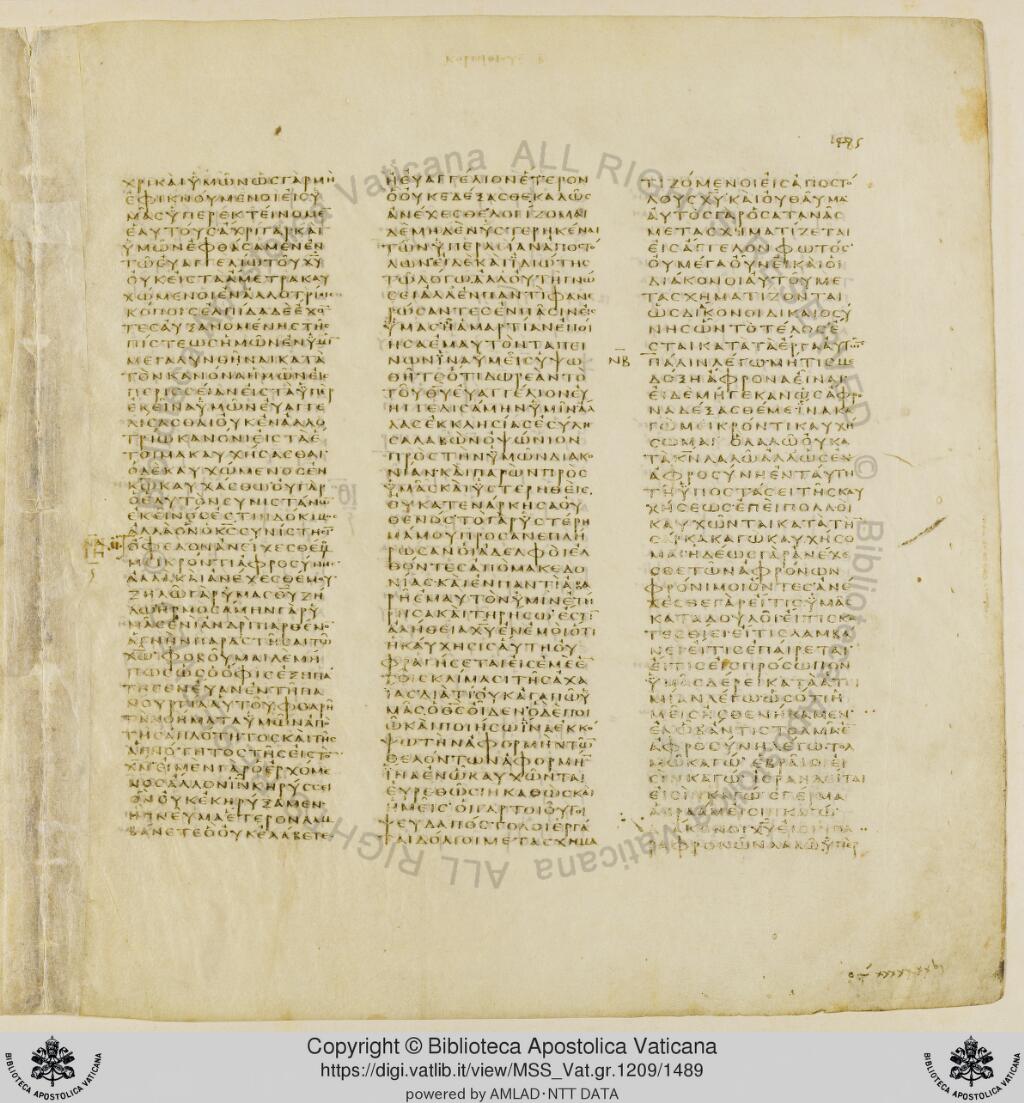 ΧΡΙΚΑΙΥΜΩΝΩϹΓΑΡΜΗ
ΕΦΙΚΝΟΥΜΕΝΟΙΕΙϹΥ
ΜΑϹΥΠΕΡΕΚΤΕΙΝΟΜΕ̅
ΕΑΥΤΟΥϹΑΧΡΙΓΑΡΚΑΙ
ΥΜΩΝΕΦΘΑϹΑΜΕΝΕΝ
ΤΩΕΥΑΓΓΕΛΙΩΤΟΥΧ̅Υ̅
ΟΥΚΕΙϹΤΑΑΜΕΤΡΑΚΑΥ
ΧΩΜΕΝΟΙΕΝΑΛΛΟΤΡΙΟΙϹ
ΚΟΠΟΙϹΕΛΠΙΔΑΔΕΕΧΟ̅
ΤΕϹΑΥΞΑΝΟΜΕΝΗϹΤΗϹ
ΠΙϹΤΕΩϹΗΜΩΝΕΝΥΜΙ̅
ΜΕΓΑΛΥΝΘΗΝΑΙΚΑΤΑ
ΤΟΝΚΑΝΟΝΑΗΜΩΝΕΙϹ
ΠΕΡΙϹϹΕΙΑΝΕΙϹΤΑΥΠΕΡ
ΕΚΕΙΝΑΥΜΩΝΕΥΑΓΓΕ
ΛΙϹΑϹΘΑΙΟΥΚΕΝΑΛΛΟ
ΤΡΙΩΚΑΝΟΝΙΕΙϹΤΑΕ
ΤΟΙΜΑΚΑΥΧΗϹΑϹΘΑΙ
ΟΔΕΚΑΥΧΩΜΕΝΟϹΕΝ
Κ̅Ω̅ΚΑΥΧΑϹΘΩΟΥΓΑΡ
ΟΕΑΥΤΟΝϹΥΝΙϹΤΑΝΩ̅
ΕΚΕΙΝΟϹΕϹΤΙΝΔΟΚΙΜΟϹ
ΑΛΛΑΟΝΟΚ̅Ϲ̅ϹΥΝΙϹΤΗϹΙ̅
ΟΦΕΛΟΝΑΝΕΙΧΕϹΘΕΜΟΥ
ΜΕΙΚΡΟΝΤΙΑΦΡΟϹΥΝΗϹ
ΑΛΛΑΚΑΙΑΝΕΧΕϹΘΕΜΟΥ
ΖΗΛΩΓΑΡΥΜΑϹΘ̅Υ̅ΖΗ
ΛΩΗΡΜΟϹΑΜΗΝΓΑΡΥ
ΜΑϹΕΝΙΑΝΔΡΙΠΑΡΘΕΝΟ̅
ΑΓΝΗΝΠΑΡΑϹΤΗϹΑΙΤΩ
Χ̅Ω̅ΦΟΒΟΥΜΑΙΔΕΜΗ
ΠΩϹΩϹΟΟΦΙϹΕΞΗΠΑ
ΤΗϹΕΝΕΥΑΝΕΝΤΗΠΑ
ΝΟΥΡΓΙΑΑΥΤΟΥΦΘΑΡΗ
ΤΑΝΟΗΜΑΤΑΥΜΩΝΑΠΟ
ΤΗϹΑΠΛΟΤΗΤΟϹΚΑΙΤΗϹ
ΑΓΝΟΤΗΤΟϹΤΗϹΕΙϹΤΟ̅
Χ̅Ν̅ΕΙΜΕΝΓΑΡΟΕΡΧΟΜΕ
ΝΟϹΑΛΛΟΝΙ̅Ν̅ΚΗΡΥϹϹΕΙ
ΟΝΟΥΚΕΚΗΡΥΞΑΜΕΝ
ΗΠΝΕΥΜΑΕΤΕΡΟΝΛΑΜ
ΒΑΝΕΤΕΟΟΥΚΕΛΑΒΕΤΕ
ΗΕΥΑΓΓΕΛΙΟΝΕΤΕΡΟΝ
ΟΟΥΚΕΔΕΞΑϹΘΕΚΑΛΩϹ
ΑΝΕΧΕϹΘΕΛΟΓΙΖΟΜΑΙ
ΔΕΜΗΔΕΝΥϹΤΕΡΗΚΕΝΑΙ
ΤΩΝΥΠΕΡΛΙΑΝΑΠΟϹΤΟ
ΛΩΝΕΙΔΕΚΑΙΙΔΙΩΤΗϹ
ΤΩΛΟΓΩΑΛΛΟΥΤΗΓΝΩ
ϹΕΙΑΛΛΕΝΠΑΝΤΙΦΑΝΕ
ΡΩϹΑΝΤΕϹΕΝΠΑϹΙΝΕΙϹ
ΥΜΑϹΗΑΜΑΡΤΙΑΝΕΠΟΙ
ΗϹΑΕΜΑΥΤΟΝΤΑΠΕΙ
ΝΩΝΙΝΑΥΜΕΙϹΥΨΩ
ΘΗΤΕΟΤΙΔΩΡΕΑΝΤΟ
ΤΟΥΘ̅Υ̅ΕΥΑΓΓΕΛΙΟΝΕΥ
ΗΓΓΕΛΙϹΑΜΗΝΥΜΙΝΑΛ
ΛΑϹΕΚΚΛΗϹΙΑϹΕϹΥΛΗ
ϹΑΛΑΒΩΝΟΨΩΝΙΟΝ
ΠΡΟϹΤΗΝΥΜΩΝΔΙΑΚΟ
ΝΙΑΝΚΑΙΠΑΡΩΝΠΡΟϹ
ΥΜΑϹΚΑΙΥϹΤΕΡΗΘΕΙϹ
ΟΥΚΑΤΕΝΑΡΚΗϹΑΟΥ
ΘΕΝΟϹΤΟΓΑΡΥϹΤΕΡΗ
ΜΑΜΟΥΠΡΟϹΑΝΕΠΛΗ
ΡΩϹΑΝΟΙΑΔΕΛΦΟΙΕΛ
ΘΟΝΤΕϹΑΠΟΜΑΚΕΔΟ
ΝΙΑϹΚΑΙΕΝΠΑΝΤΙΑΒΑ
ΡΗΕΜΑΥΤΟΝΥΜΙΝΕΤΗ
ΡΗϹΑΚΑΙΤΗΡΗϹΩΕϹΤΙ̅
ΑΛΗΘΕΙΑΧ̅Υ̅ΕΝΕΜΟΙΟΤΙ
ΗΚΑΥΧΗϹΙϹΑΥΤΗΟΥ
ΦΡΑΓΗϹΕΤΑΙΕΙϹΕΜΕΕ̅
ΤΟΙϹΚΛΙΜΑϹΙΤΗϹΑΧΑ
ΙΑϹΔΙΑΤΙΟΥΚΑΓΑΠΩΥ
ΜΑϹΟΘ̅Ϲ̅ΟΙΔΕΝΟΔΕΠΟΙ
ΩΚΑΙΠΟΙΗϹΩΙΝΑΕΚΚΟ
ΨΩΤΗΝΑΦΟΡΜΗΝΤΩ̅
ΘΕΛΟΝΤΩΝΑΦΟΡΜΗ̅
ΙΝΑΕΝΩΚΑΥΧΩΝΤΑΙ
ΕΥΡΕΘΩϹΙΝΚΑΘΩϹΚΑΙ
ΗΜΕΙϹΟΙΓΑΡΤΟΙΟΥΤΟΙ
ΨΕΥΔΑΠΟϹΤΟΛΟΙΕΡΓΑ
ΤΑΙΔΟΛΙΟΙΜΕΤΑϹΧΗΜΑ
ΤΙΖΟΜΕΝΟΙΕΙϹΑΠΟϹΤΟ
ΛΟΥϹΧ̅Υ̅ΚΑΙΟΥΘΑΥΜΑ
ΑΥΤΟϹΓΑΡΟϹΑΤΑΝΑϹ
ΜΕΤΑϹΧΗΜΑΤΙΖΕΤΑΙ
ΕΙϹΑΓΓΕΛΟΝΦΩΤΟϹ
ΟΥΜΕΓΑΟΥΝΕΙΚΑΙΟΙ
ΔΙΑΚΟΝΟΙΑΥΤΟΥΜΕ
ΤΑϹΧΗΜΑΤΙΖΟΝΤΑΙ
ΩϹΔΙΑΚΟΝΟΙΔΙΚΑΙΟϹΥ
ΝΗϹΩΝΤΟΤΕΛΟϹΕ
ϹΤΑΙΚΑΤΑΤΑΕΡΓΑΑΥΤΩ̅
Ν̅Β̅ ΠΑΛΙΝΛΕΓΩΜΗΤΙϹΜΕ
ΔΟΞΗΑΦΡΟΝΑΕΙΝΑΙ
ΕΙΔΕΜΗΓΕΚΑΝΩϹΑΦΡΟ
ΝΑΔΕΞΑϹΘΕΜΕΙΝΑΚΑ
ΓΩΜΕΙΚΡΟΝΤΙΚΑΥΧΗ
ϹΩΜΑΙΟΛΑΛΩΟΥΚΑ
ΤΑΚ̅Ν̅ΛΑΛΩΑΛΛΩϹΕΝ
ΑΦΡΟϹΥΝΗΕΝΤΑΥΤΗ
ΤΗΥΠΟϹΤΑϹΕΙΤΗϹΚΑΥ
ΧΗϹΕΩϹΕΠΕΙΠΟΛΛΟΙ
ΚΑΥΧΩΝΤΑΙΚΑΤΑΤΗ̅
ϹΑΡΚΑΚΑΓΩΚΑΥΧΗϹΟ
ΜΑΙΗΔΕΩϹΓΑΡΑΝΕΧΕ
ϹΘΕΤΩΝΑΦΡΟΝΩΝ
ΦΡΟΝΙΜΟΙΟΝΤΕϹΑΝΕ
ΧΕϹΘΕΓΑΡΕΙΤΙϹΥΜΑϹ
ΚΑΤΑΔΟΥΛΟΙΕΙΤΙϹΚΑ
ΤΕϹΘΙΕΙΕΙΤΙϹΛΑΜΒΑ
ΝΕΙΕΙΤΙϹΕΠΑΙΡΕΤΑΙ
ΕΙΤΙϹΕΙϹΠΡΟϹΩΠΟΝ
ΥΜΑϹΔΕΡΕΙΚΑΤΑΑΤΙ
ΜΙΑΝΛΕΓΩΩϹΟΤΙΗ
ΜΕΙϹΗϹΘΕΝΗΚΑΜΕΝ
ΕΝΩΔΑΝΤΙϹΤΟΛΜΑΕ̅
ΑΦΡΟϹΥΝΗΛΕΓΩΤΟΛ
ΜΩΚΑΓΩΕΒΡΑΙΟΙΕΙ
ϹΙΝΚΑΓΩΙϹΡΑΗΛΕΙΤΑΙ
ΕΙϹΙΝΚΑΓΩϹΠΕΡΜΑ
ΑΒΡΑΑΜΕΙϹΙΝΚΑΓΩ
ΔΙΑΚΟΝΟΙΧ̅Υ̅ΕΙϹΙΝΠΑ
ΡΑΦΡΟΝΩΝΛΑΛΩΥΠΕΡ
Copyright © Biblioteca Apostolica Vaticana
https://digi.vatlib.it/view/MSS_Vat.gr.1209/1489
powered by AMLAD·NTT DATA